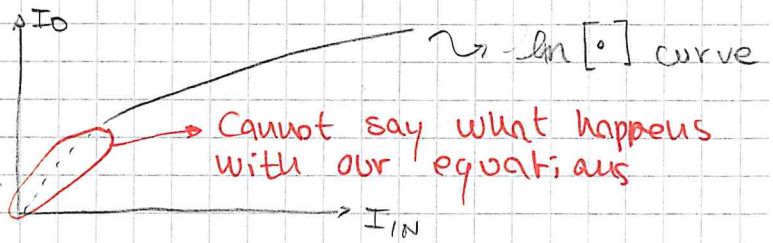 IO
ln [•] curve
Cannot say what happens
with our equations
IIN